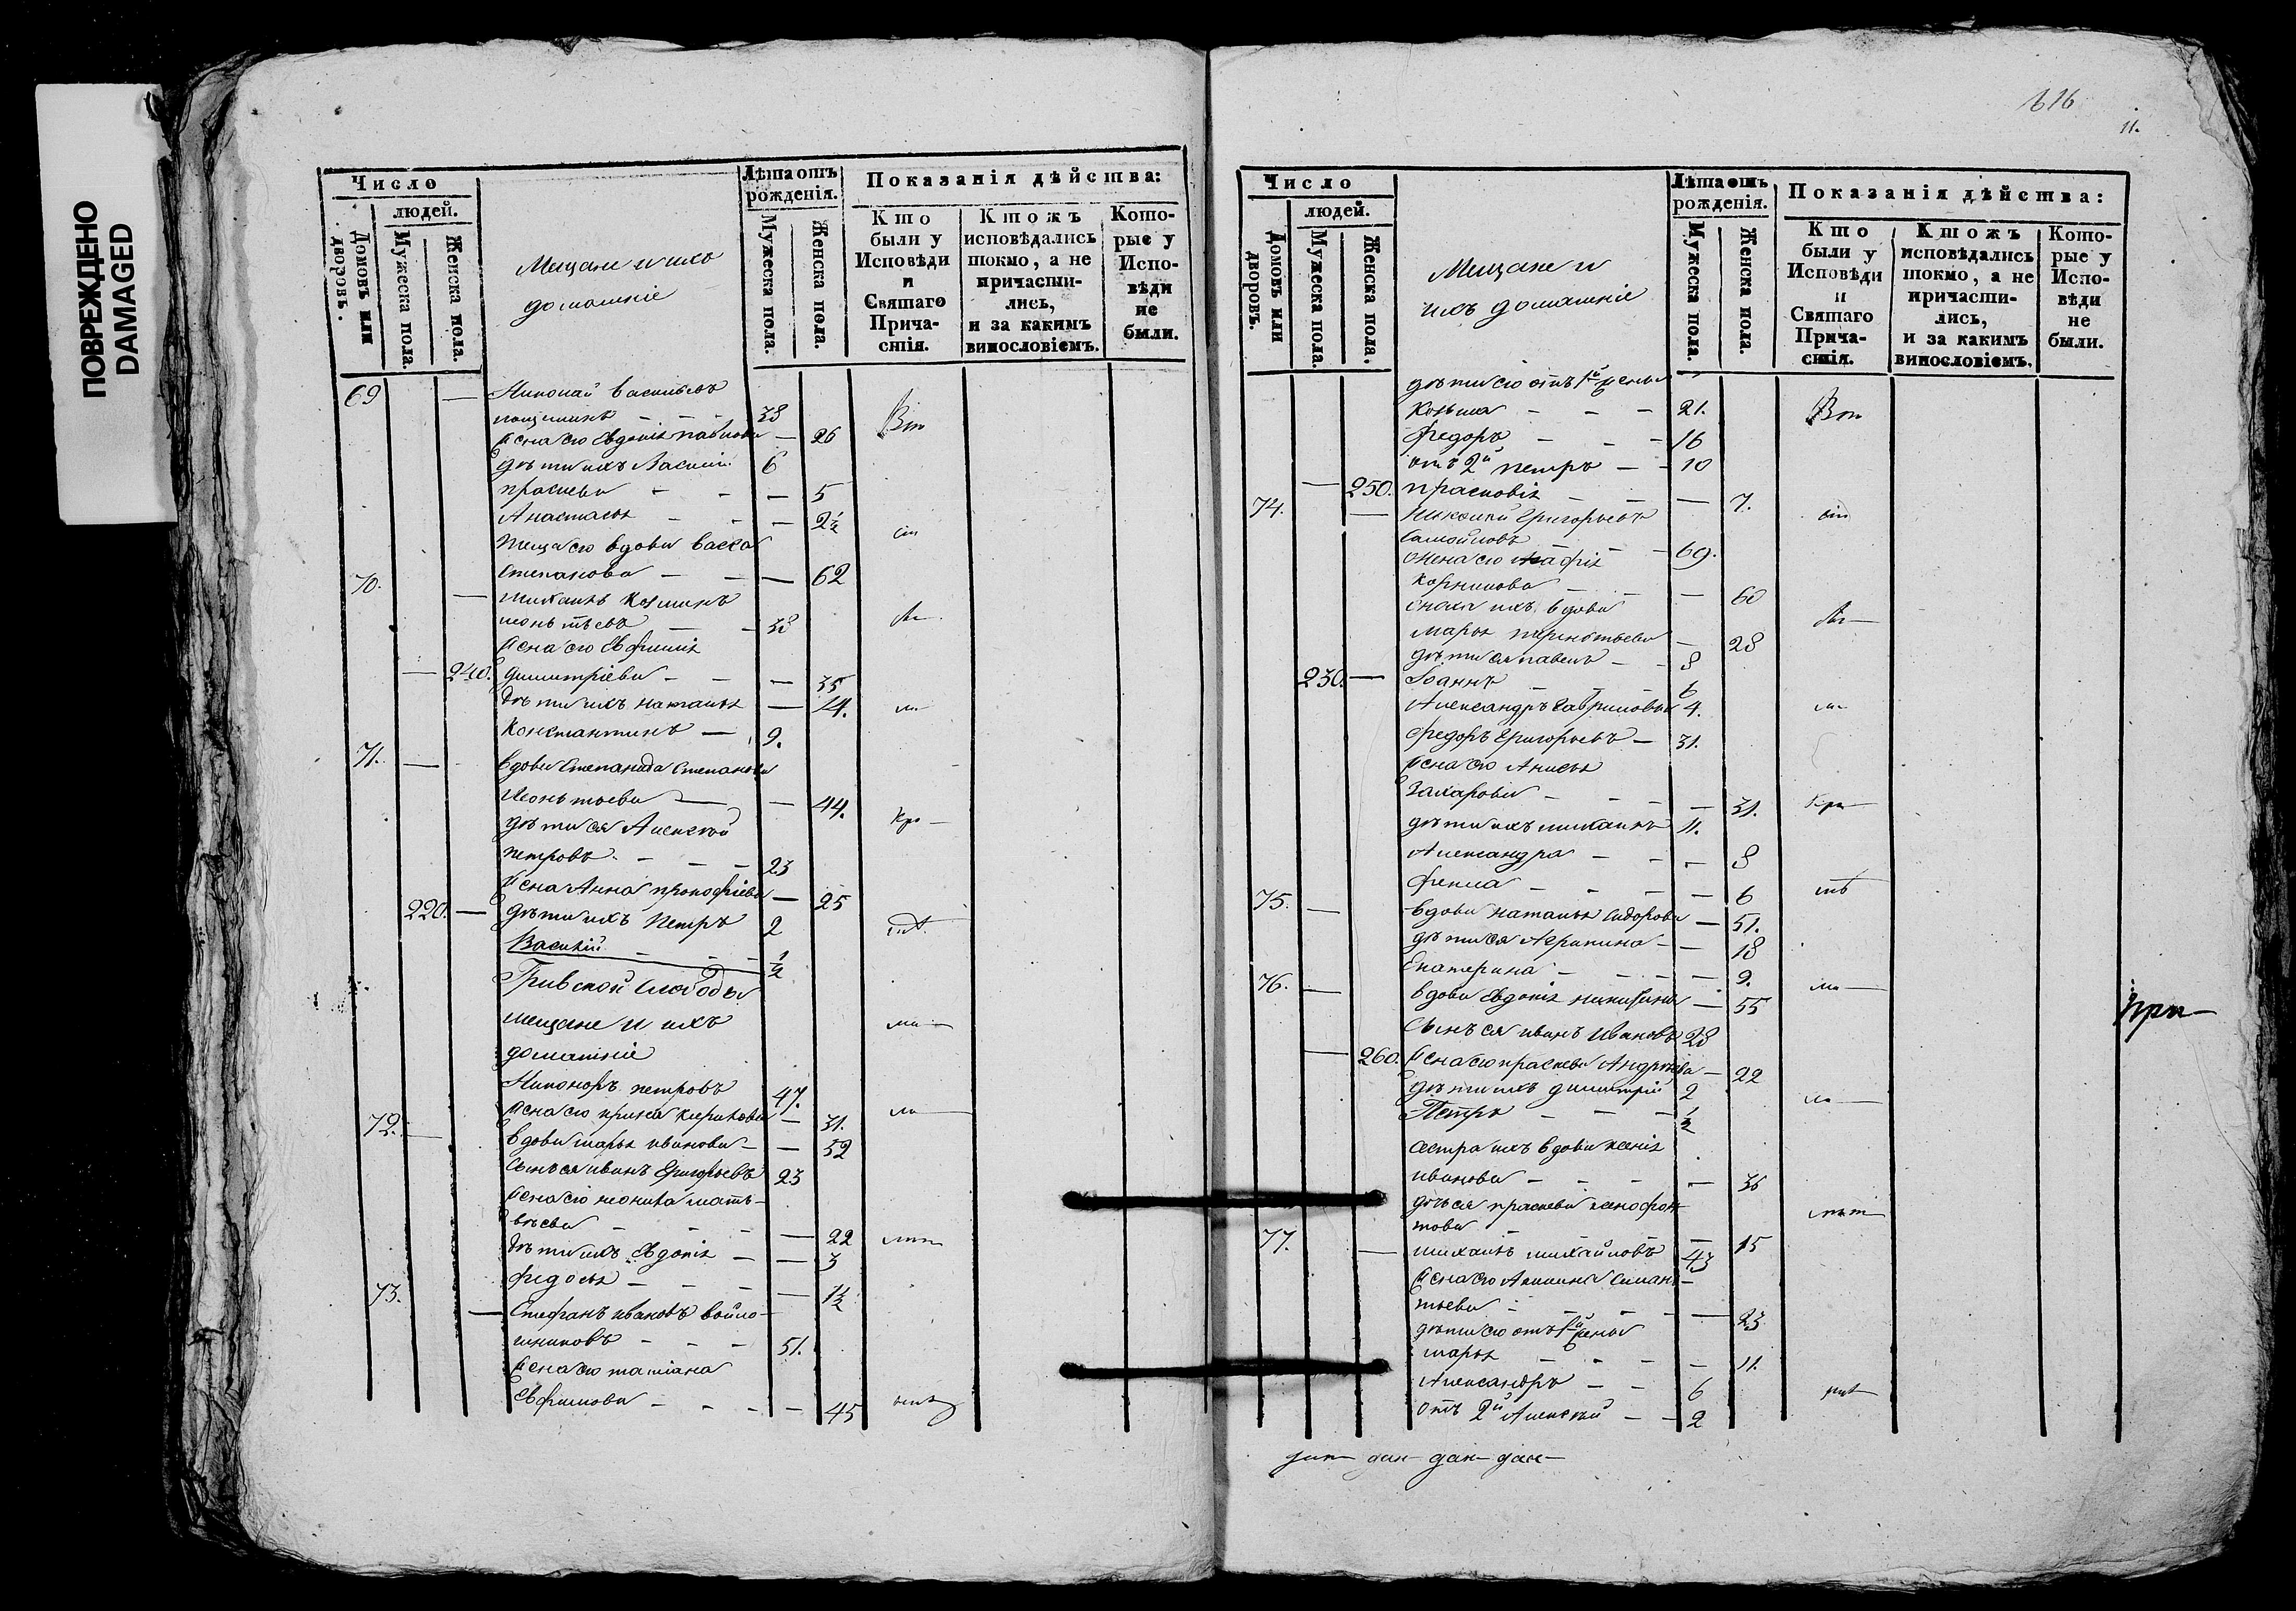 ПОВРЕЖДЕНО
DAMAGED
Число
людей.
Домовъ или дворовъ.
Мужеска пола.
Женска пола.
Мещане и ихъ
домашніе
Лѣта отъ
рожденія.
Мужеска пола.
Женска пола.
Показанія дѣйства:
Кто
были у
Исповѣди
и
Святаго
Прича-
стія.
Ктожъ
исповѣдались
токмо, а не
причасти-
лись,
и за какимъ
винословіемъ.
Кото-
рые у
Испо-
вѣди
не
были.
69 — Николай Васильевъ
38
жена его Евдокія Павлова — 26
дѣти ихъ Василій 6
Праскева — — — 5
Анастасья — — — 2½
теща его вдова Васса
Степанова — — — 62
70. — Михаилъ Козминъ
Леонтьевъ — — 38
жена его Евфимія
— 240. Димитріева — — — 35
дѣти ихъ Наталья — 14.
Константинъ — 9.
71. — вдова Степанида Степанова
Леонтьева — — 44.
дѣти ея Алексѣй
Петровъ — — — 23
жена Анна Прокофіева — 25
220. — дѣти ихъ Петръ 2
Василій — — — ½
Гривской Слободы
мещане и ихъ
домашніе
Никоноръ Петровъ 47.
жена его Ирина — 31.
72. — вдова Марья Иванова — — 52
сынъ ея Иванъ Григорьевъ 23
жена его Леонида Матв-
ѣева — — — — 22
дѣти ихъ Евдокія — — 3
Федосья — — — — 1½
73. — Стефанъ Ивановъ Войло-
шниковъ — — — 51.
жена его Татіана
Евфимова — — — — 45
616
11.
Число
людей.
Домовъ или дворовъ.
Мужеска пола.
Женска пола.
Мещане и
ихъ домашніе
Лѣта отъ
рожденія.
Мужеска пола.
Женска пола.
Показанія дѣйства:
Кто
были у
Исповѣди
и
Святаго
Прича-
стія.
Ктожъ
исповѣдались
токмо, а не
причасти-
лись,
и за какимъ
винословіемъ.
Кото-
рые у
Испо-
вѣди
не
были.
дѣти его отъ 1й жены
Козьма — — — 21.
Федоръ — — — 16
отъ 2й Петръ — — 10
— 250. Прасковія — — — 7.
74. — Григорьевъ
Самойловъ — — 69.
жена его
Корнилова — — — 60
сноха ихъ вдова
Марья — 28
дѣти ея Павелъ — — 8
230. — Іоаннъ — — — 6
Александръ Гавриловъ 4.
Федоръ Григорьевъ — 31.
жена его Анисья
Захарова — — — — 31.
дѣти ихъ Михаилъ 11.
Александра — — — 8
Фекла — — — — 6
75. — вдова Наталья Сидорова — 51.
дѣти ея Агрипина — — 18
Екатерина — — — — 9.
76. — вдова Евдокія Никитина — 55
сынъ ея Иванъ Ивановъ 28
— 260. жена его Праскева Андреева — 22
дѣти ихъ Димитрій 2
Петръ — — — ½
сестра ихъ вдова Ксенія
Иванова — — — — 36
дочь ея Праскева Ксенофон-
това — — — — 15
77. — Михаилъ Михайловъ 43
жена его Акилина Силан-
тьева — — — — 23
дѣти его отъ 1й жены
Марья — — — — 11.
Александръ — — 6
отъ 2й Алексѣй — — 2